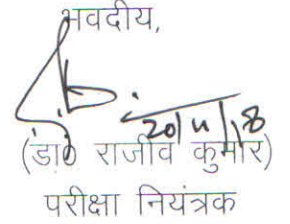 भवदीय,
20/11/18
(डा० राजीव कुमार)
परीक्षा नियंत्रक